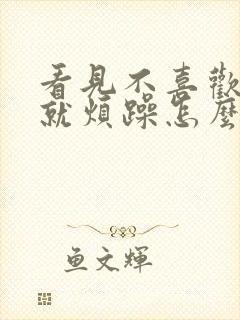 看見不喜歡
就煩躁怎麼
鱼文輝